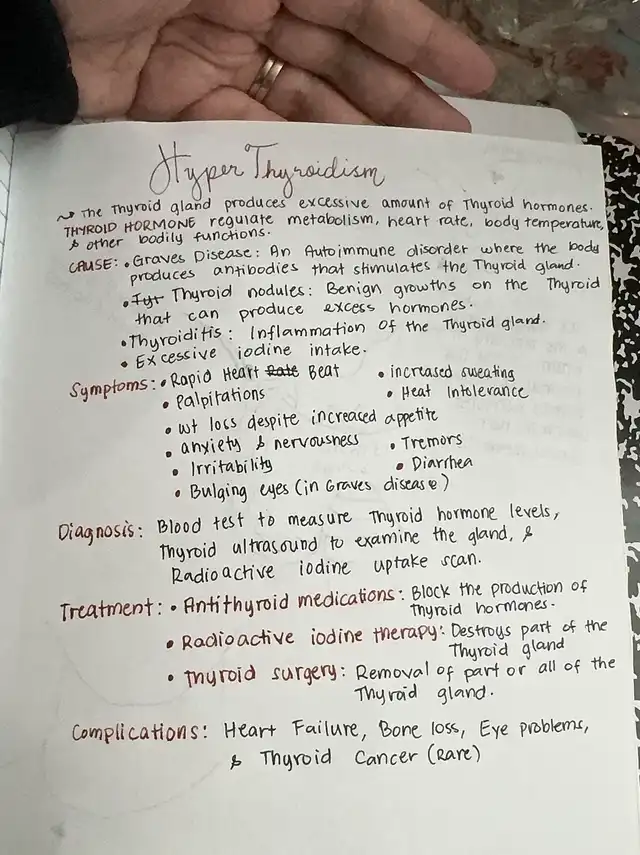 Hyper Thyroidism
~> The Thyroid gland produces excessive amount of Thyroid hormones.
THYROID HORMONE regulate metabolism, heart rate, body temperature,
& other bodily functions.
CAUSE: • Graves Disease: An Autoimmune disorder where the body
produces antibodies that stimulates the Thyroid gland.
• Tyr Thyroid nodules: Benign growths on the Thyroid
that can produce excess hormones.
• Thyroiditis: Inflammation of the Thyroid gland.
• Excessive iodine intake.
Symptoms: • Rapid Heart Rate Beat • increased sweating
• Palpitations • Heat Intolerance
• wt loss despite increased appetite
• anxiety & nervousness • Tremors
• Irritability • Diarrhea
• Bulging eyes (in Graves disease)
Diagnosis: Blood test to measure Thyroid hormone levels,
Thyroid ultrasound to examine the gland, &
Radioactive iodine uptake scan.
Treatment: • Antithyroid medications: Block the production of
Thyroid hormones.
• Radioactive iodine therapy: Destroys part of the
Thyroid gland
• Thyroid surgery: Removal of part or all of the
Thyroid gland.
Complications: Heart Failure, Bone loss, Eye problems,
& Thyroid Cancer (Rare)